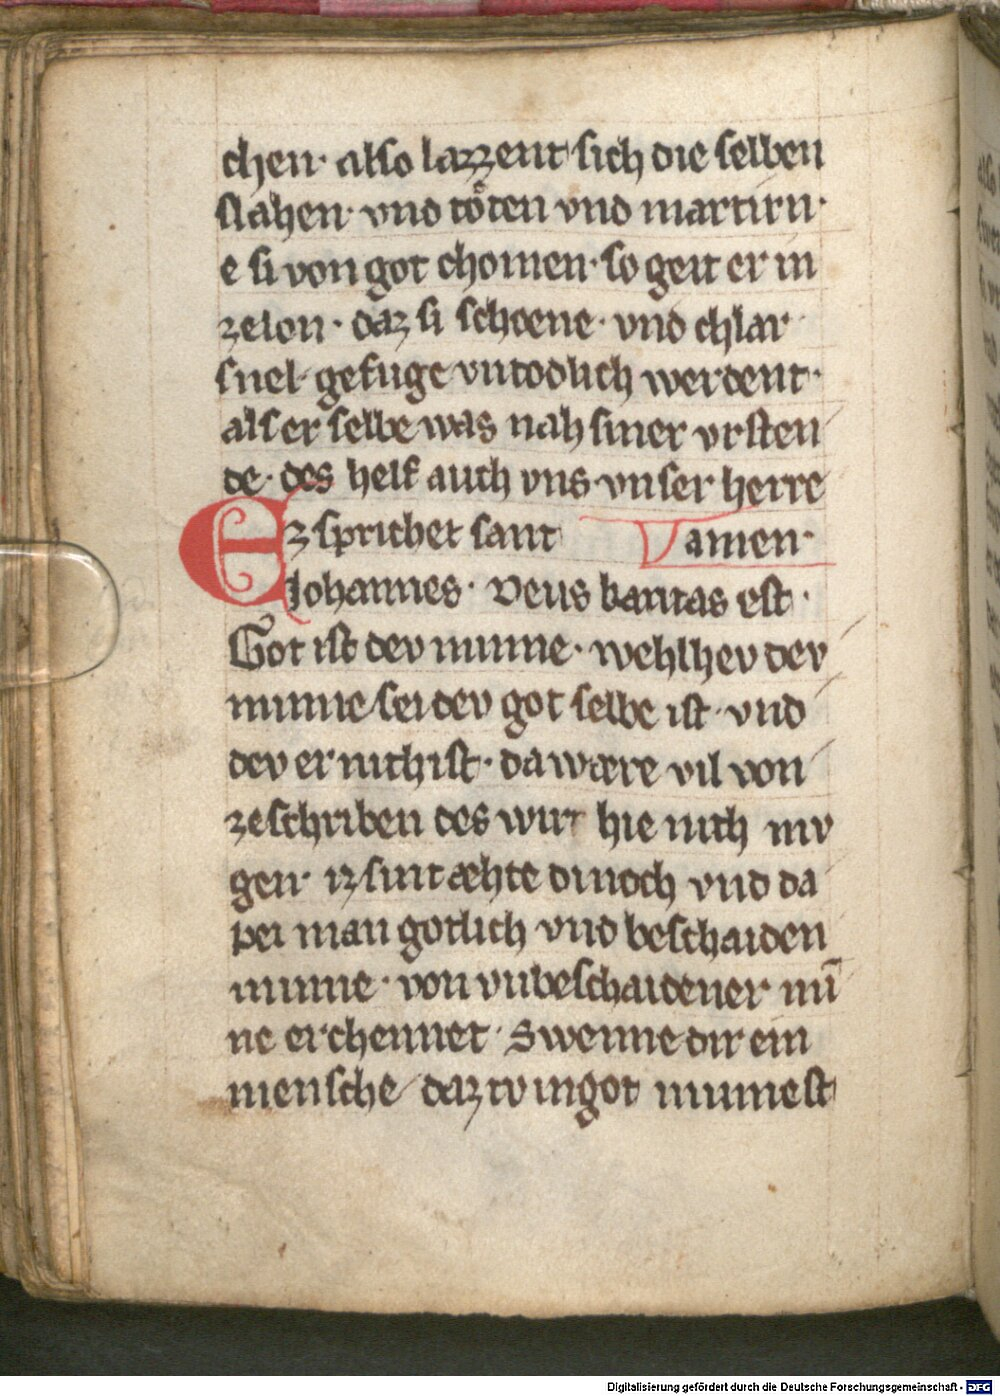 chen· also lazzent sich die selben
slahen· vnd toͤten vnd martirn·
e si von got chomen· so geit er in
zelon· daz si schoene· vnd chlar·
snel· gefuge vntodlich werdent·
als er selbe was nah siner vrsten
de· des helf auch vns vnser herre
Ez sprichet sant amen·
Johannes· Deus karitas est·
Got ist dev minne· wehlhev dev
minne sei dev got selbe ist· vnd
dev er nith ist· da wære vil von
zeschriben des wir hie nith mv
gen· iz sint æhte dinoch vnd da
pei man gotlich vnd beschaiden
minne· von vnbeschaidener mī
ne erchennet· Swenne dir ein
mensche daz tv in got minnest
Digitalisierung gefördert durch die Deutsche Forschungsgemeinschaft - DFG